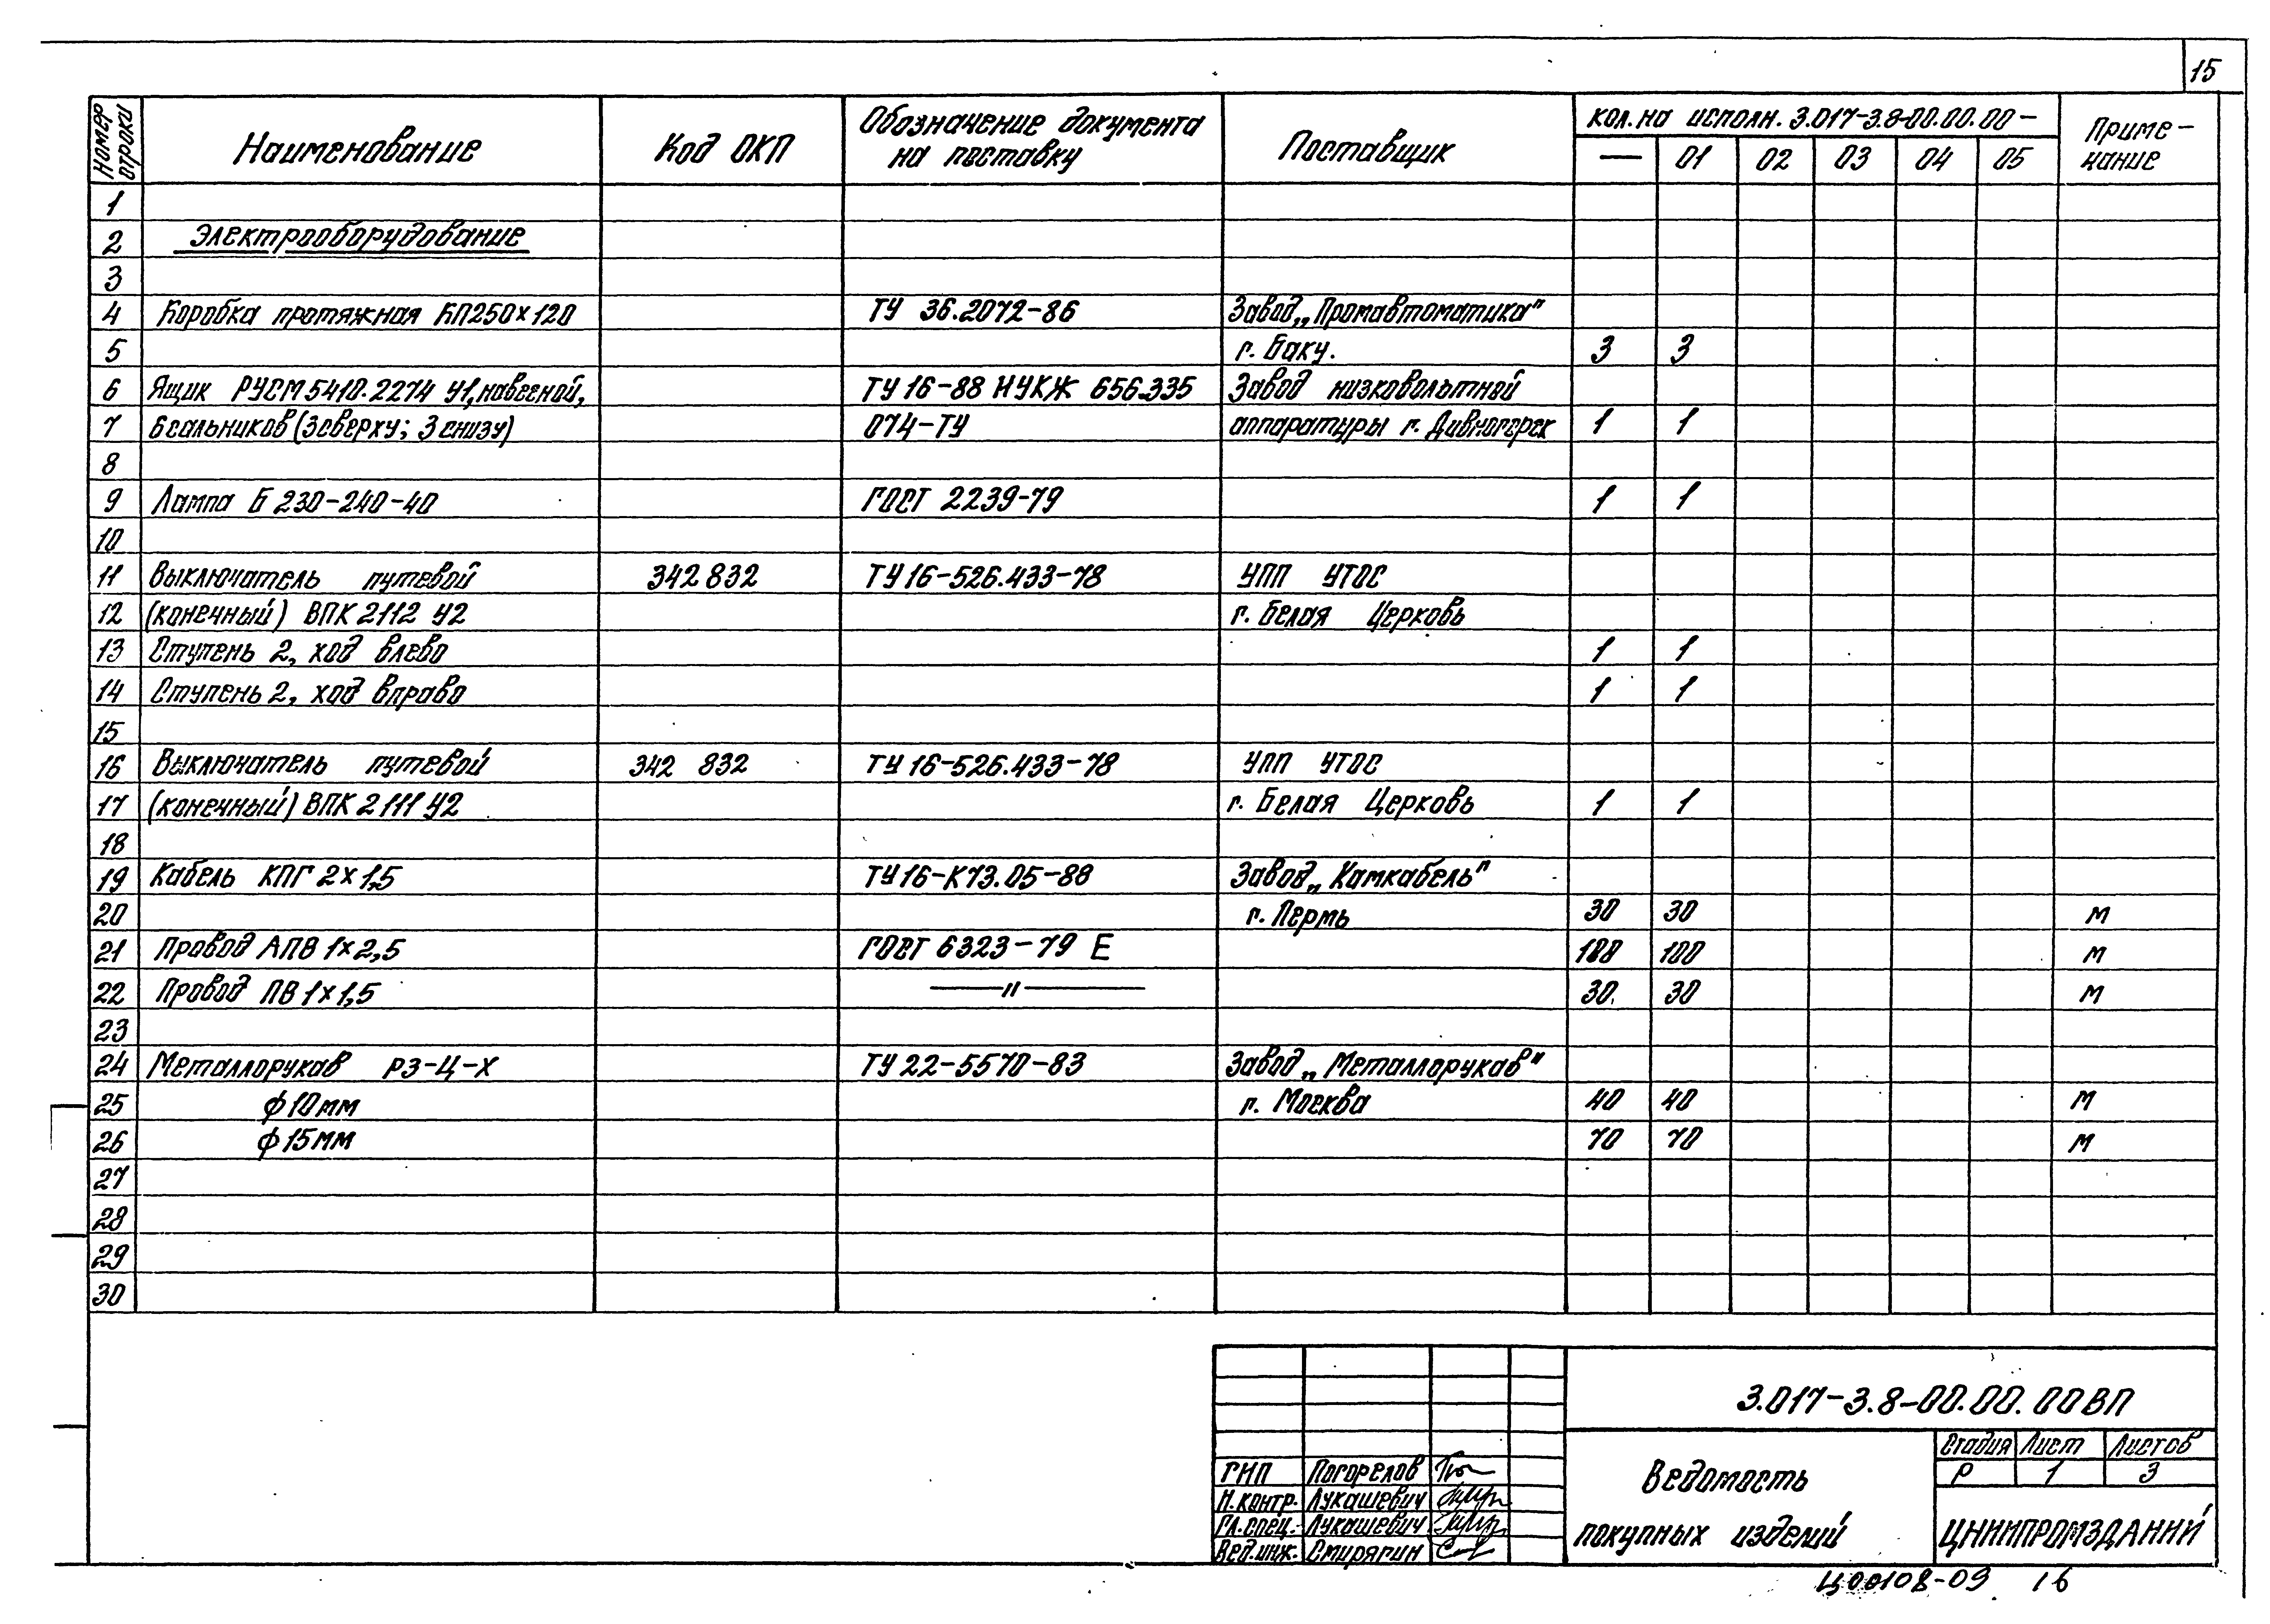 15
Номер строки | Наименование | Код ОКП | Обозначение документа на поставку | Поставщик | кол. на исполн. 3.017-3.8-00.00.00- | Приме-чание
— | 01 | 02 | 03 | 04 | 05
1
2 Электрооборудование
3
4 Коробка протяжная КП250×120 ТУ 36.2072-86 Завод „Промавтоматика"
5 г. Баку. 3 3
6 Ящик РУСМ5410.2274 У1, навесной, ТУ16-88 ИУКЖ 656.335 Завод низковольтной
7 6сальников (3сверху; 3 снизу) 074-ТУ аппаратуры г. Дивногорск 1 1
8
9 Лампа Б 230-240-40 ГОСТ 2239-79 1 1
10
11 Выключатель путевой 342 832 ТУ16-526.433-78 УПП УТОС
12 (конечный) ВПК 2112 У2 г. Белая Церковь
13 Ступень 2, ход влево 1 1
14 Ступень 2, ход вправо 1 1
15
16 Выключатель путевой 342 832 ТУ16-526.433-78 УПП УТОС
17 (конечный) ВПК 2111 У2 г. Белая Церковь 1 1
18
19 Кабель КПГ 2×1,5 ТУ16-К73.05-88 Завод „Камкабель"
20 г. Пермь 30 30 м
21 Провод АПВ 1×2,5 ГОСТ 6323-79 Е 100 100 м
22 Провод ПВ 1×1,5 —"— 30 30 м
23
24 Металлорукав РЗ-Ц-Х ТУ 22-5570-83 Завод „Металлорукав"
25 ф10мм г. Москва 40 40 м
26 ф15мм 70 70 м
27
28
29
30
3.017-3.8-00.00.00ВП
Ведомость
покупных изделий
Стадия Лист Листов
Р 1 3
ЦНИИПРОМЗДАНИЙ
ГИП Погорелов
Н.контр. Лукашевич
Гл.спец. Лукашевич
Вед.инж. Смирягин
Ц00108-09 16